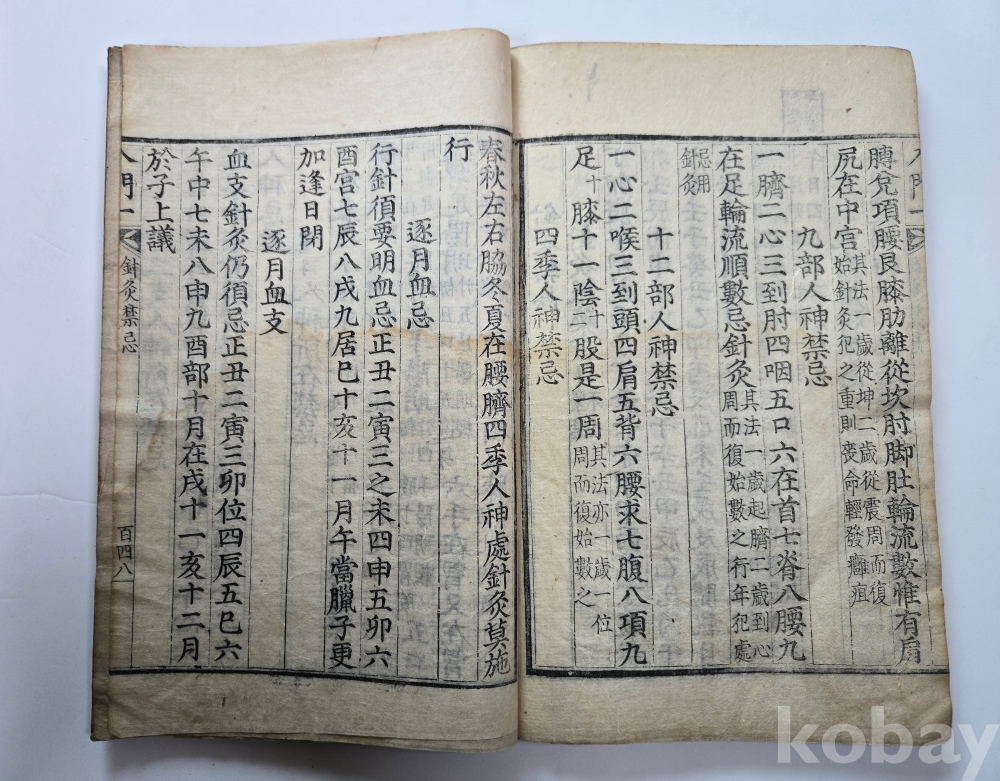 膊兌項腰艮膝肋離從坎肘脚肚輪流數惟有肩
尻在中宮其法一歲從坤二歲從震周而復始針灸犯之重則喪命輕發癰疽
九部人神禁忌
一臍二心三到肘四咽五口六在首七脊八腰九
在足輪流順數忌針灸其法一歲起臍二歲到心周而復始數之行年犯處
忌用針灸
十二部人神禁忌
一心二喉三到頭四肩五背六腰求七腹八項九
足十膝十一陰十二股是一周其法亦一歲一位周而復始數之
四季人神禁忌
春秋左右脇冬夏在腰臍四季人神處針灸莫施
行
逐月血忌
行針須要明血忌正丑二寅三之未四申五卯六
酉宮七辰八戌九居巳十亥十一月午當臘子更
加逢日閉
逐月血支
血支針灸仍須忌正丑二寅三卯位四辰五巳六
午中七未八申九酉部十月在戌十一亥十二月
於子上議
入門一
針灸禁忌
百四八
kobay